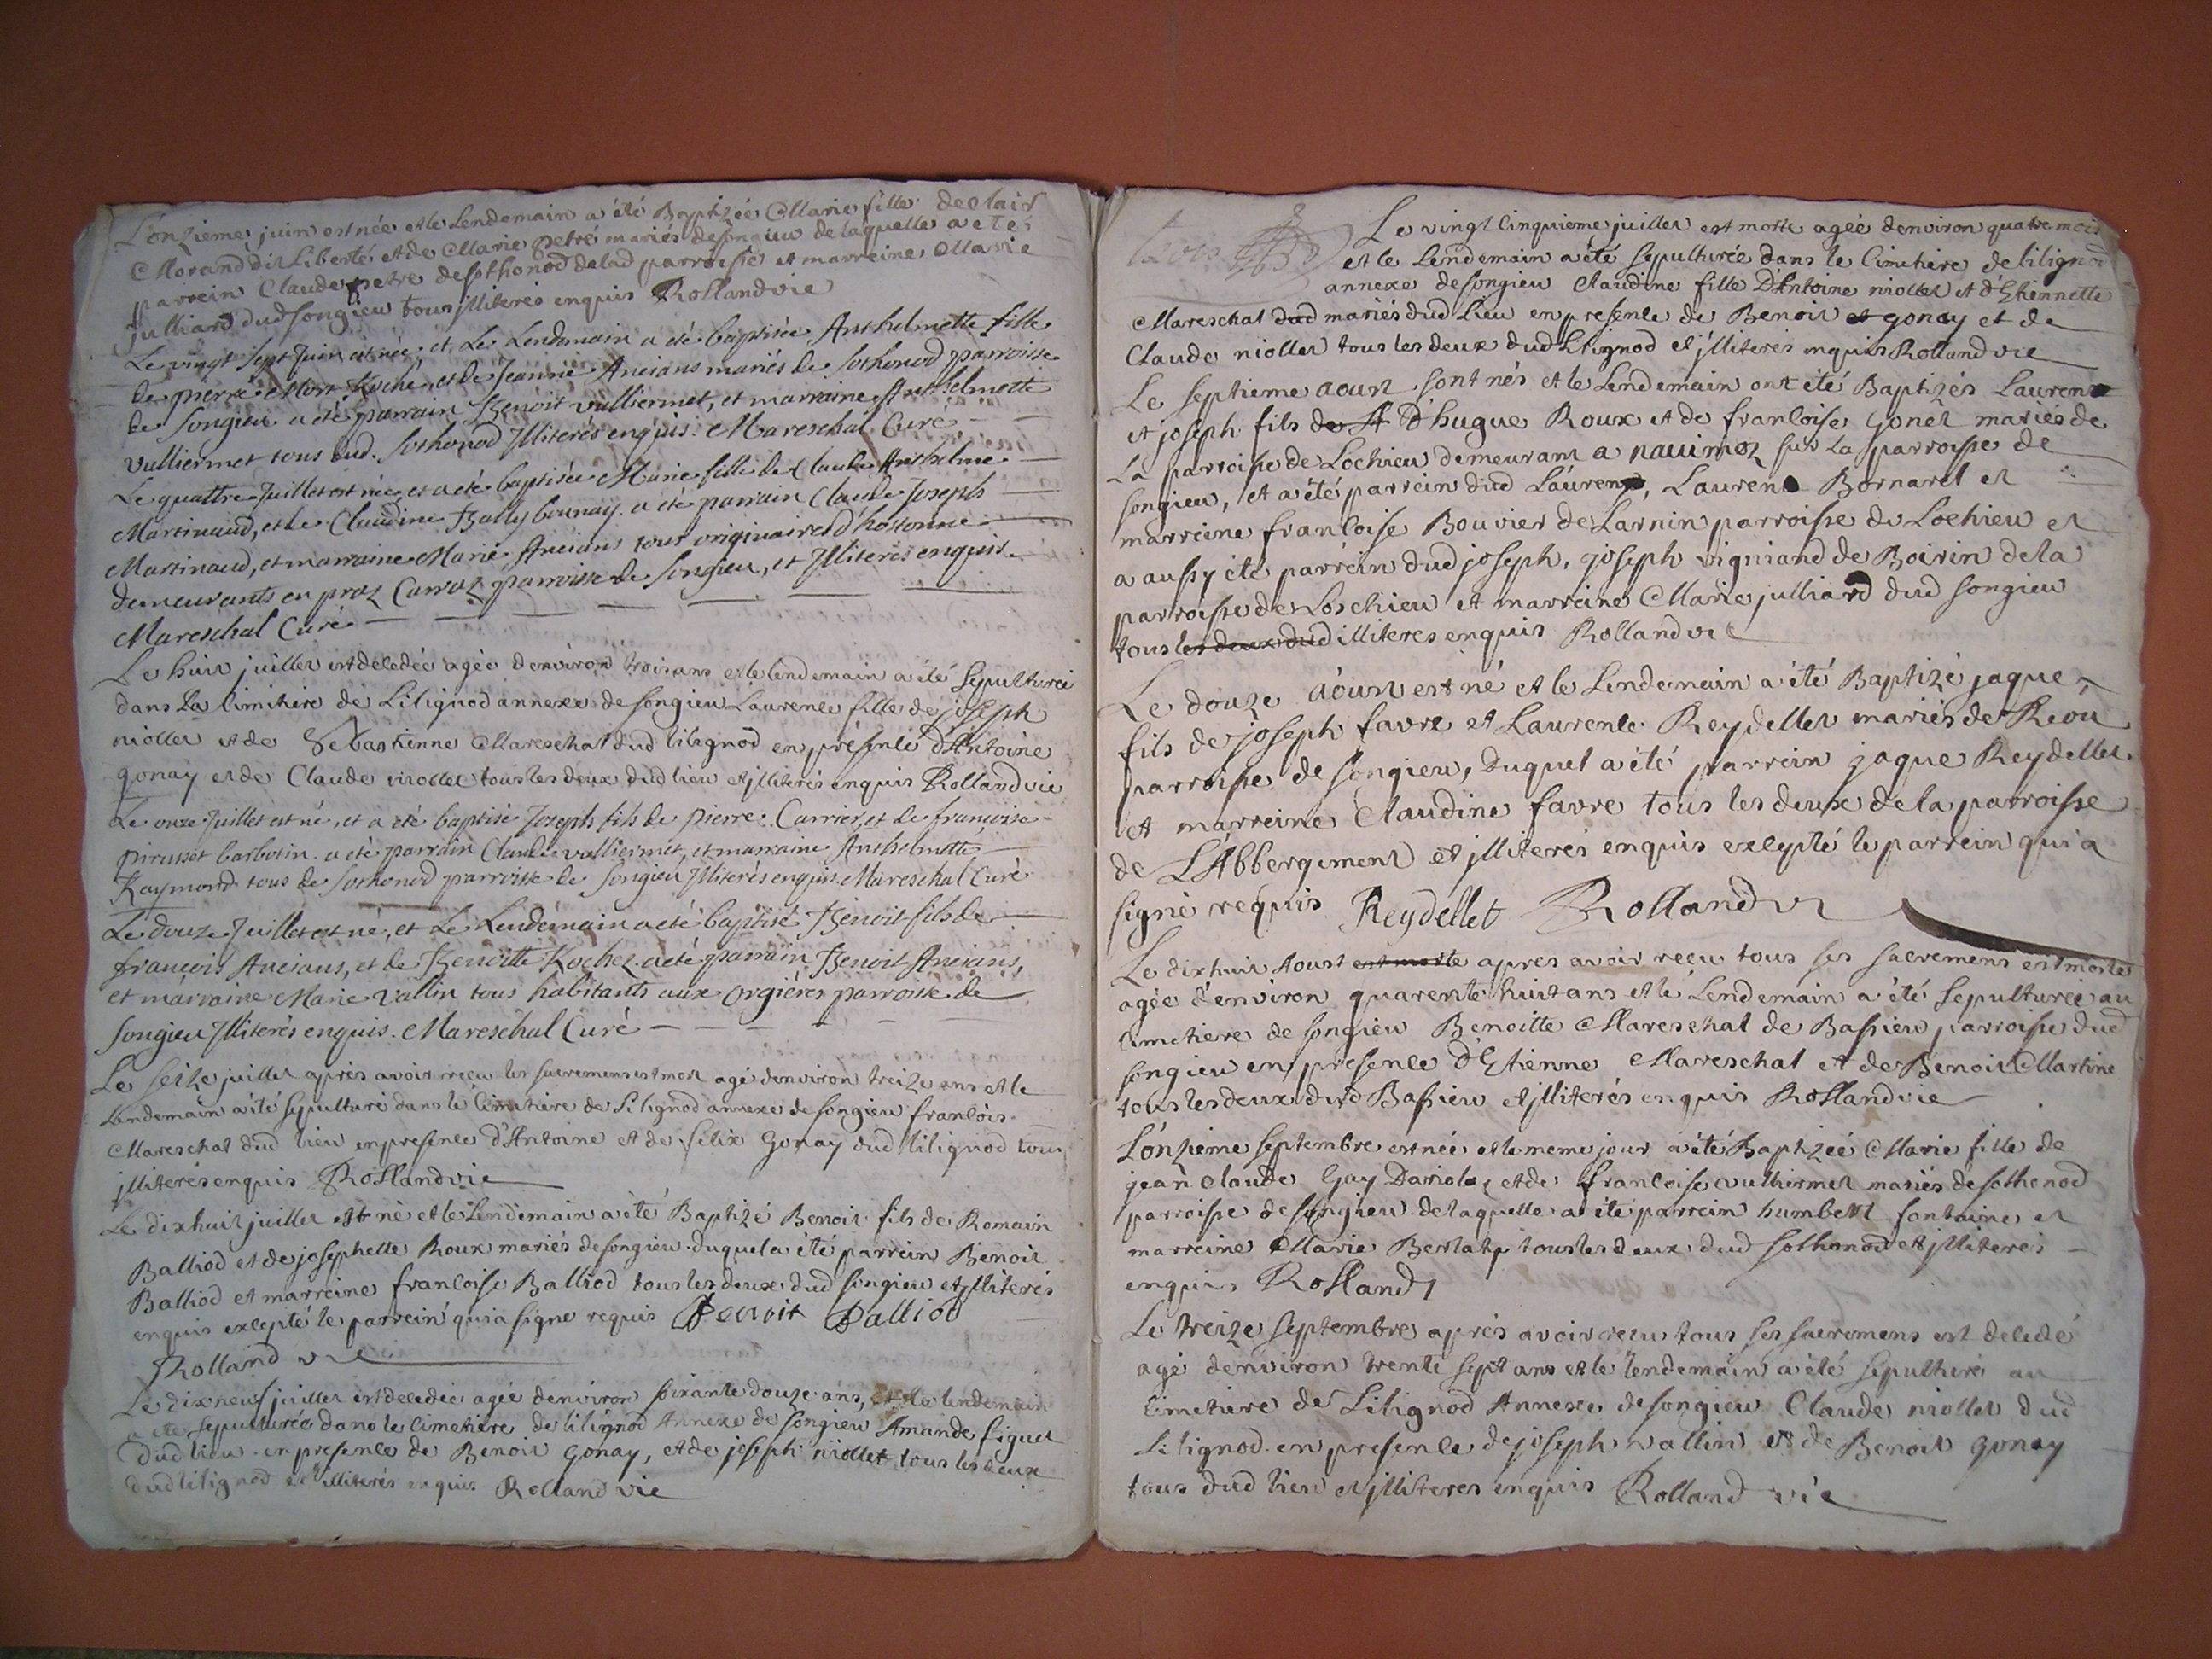 L'onzieme juin est née et le Lendemain a été Baptizée Marie fille de clair
Morand dit Liberté et de Marie petre mariés de songieu de laquelle a eté
parrein Claude petre de sothonod de lad parroisse et marreine Marie
julliard dud songieu tous illiterés enquis Rolland vic
Le vingt sept Juin est née, et Le Lendemain a été baptisée Anthelmette fille
de pierre Mort Roche, et de Jeanne Ancians mariés de sothonod parroisse
de Songieu a été parrain Benoit vulliermet, et marraine Anthelmette
vulliermet tous dud. Sothonod Illiterés enquis. Mareschal Curé
Le quattre Juillet est née, et a été baptisée Marie fille de Claude Anthelme
Martinaud, et de Claudine Bally a été parrain Claude Joseph
Martinaud, et marraine Marie Ancians tous originaires d'hostonne
demeurants en praz Carroz parroisse de Songieu, et Illiterés enquis
Mareschal Curé
Le huit juillet est décedée agée d'environ trois ans et le lendemain a été sepulturée
dans La cimitiere de Lilignod annexe de songieu Laurence fille de joseph
niollet et de Sebastienne Mareschal dud lilignod en présence d'Antoine
gonay et de Claude niollet tous les deux dud lieu et illiterés enquis Rolland vic
Le onze Juillet est né, et a été baptisé Joseph fils de pierre Carrier, et de françoise
pirusset barbotin. a été parrain Claude vulliermet, et marraine Anthelmette
Raymond tous de sothonod parroisse de Songieu Illiterés enquis. Mareschal Curé
Le douze Juillet est né, et Le Lendemain a été baptisé Benoit fils de
françois Ancians, et de Benoitte Rochez. a été parrain Benoit Ancians,
et marraine Marie vallin tous habitants aux orgiéres parroisse de
Songieu Illiterés enquis. Mareschal Curé
Le seize juillet aprés avoir reçu les sacremens est mort agé d'environ treize ans et le
Lendemain a été sepulturé dans le Cimitiere de Lilignod annexe de songieu francois
Mareschal dud lieu en presence d'Antoine et de felix Gonay dud lilignod tous
illiterés enquis Rolland vic
Le dixhuit juillet est né et le Lendemain a été Baptizé Benoit fils de Romain
Balliod et de josephette Roux mariés de songieu duquel a été parrein Benoit
Balliod et marreine francoise Balliod tous les deux dud songieu et illiterés
enquis excepté le parrein qui a signe requis Benoit Balliod
Rolland vic
Le dixneuf juillet est decedée agée d'environ soixante douze ans, et le lendemain
a eté sepulturée dans le Cimetiere de lilignod Annexe de Songieu Amande figuet
dud lieu en presence de Benoit Gonay, et de joseph niollet tous les deux
dud lilignod et illiterés enquis Rolland vic
trois
Le vingt cinquieme juillet est morte agée d'environ quatre mois
et le Lendemain a été sepulturée dans le Cimitiere de lilignod
annexe de songieu Claudine fille D'Antoine niollet et d'Etiennette
Mareschal dud mariés dud Lieu en presence de Benoit et gonay et de
Claude niollet tous les deux dud Lilignod et illiterés enquis Rolland vic
Le septieme aoust sont nés et le Lendemain ont été Baptizés Laurent
et joseph fils de A D'hugue Roux et de francoise Gonet mariés de
La parroisse de Lochieu demeurant a navimoz sur La parroisse de
songieu, et a été parrein dud Laurent, Laurent Bornarel et
marreine francoise Bouvier de Larnin parroisse de Lochieu et
a aussy été parrein dud joseph, joseph vigniand de Boirin de la
parroisse de Loschieu et marreine Marie julliard dud songieu
tous les deux dud illiteres enquis Rolland vic
Le douze aoust est né et le Lendemain a été Baptizé jaque
fils de joseph favre et Laurence Reydellet mariés de Riou
parroisse de songieu, duquel a été parrein jaque Reydellet
et marreine Claudine favre tous les deux de la parroisse
de L'Abbergement et illiterés enquis excepté le parrein qui a
signé requis Reydellet Rolland vic
Le dixhuit Aoust est morte apres avoir reçu tous ses sacremens est morte
agée d'environ quarente huit ans et le Lendemain a été sepulturée au
Cimetiere de songieu Benoitte Mareschal de Bassieu parroisse dud
songieu en presence d'Etienne Mareschal et de Benoit Martine
tous les deux dud Bassieu et illiterés enquis Rolland vic
L'onzieme septembre est née et le meme jour a été Baptizée Marie fille de
jean Claude Gay Dariola et de francoise vulliermet mariés de sothonod
parroisse de songieu de laquelle a été parrein humbert fontaine et
marreine Marie tous les deux dud sothonod et illiterés
enquis Rolland
Le treize septembre aprés avoir recu tous ses sacremens est decedé
agé d'environ trente sept ans et le lendemain a été sepulturé au
Cimetiere de Lilignod Annexe de songieu Claude niollet dud
Lilignod en presence de joseph vallin et de Benoit gonay
tous dud lieu et illiteres enquis Rolland vic